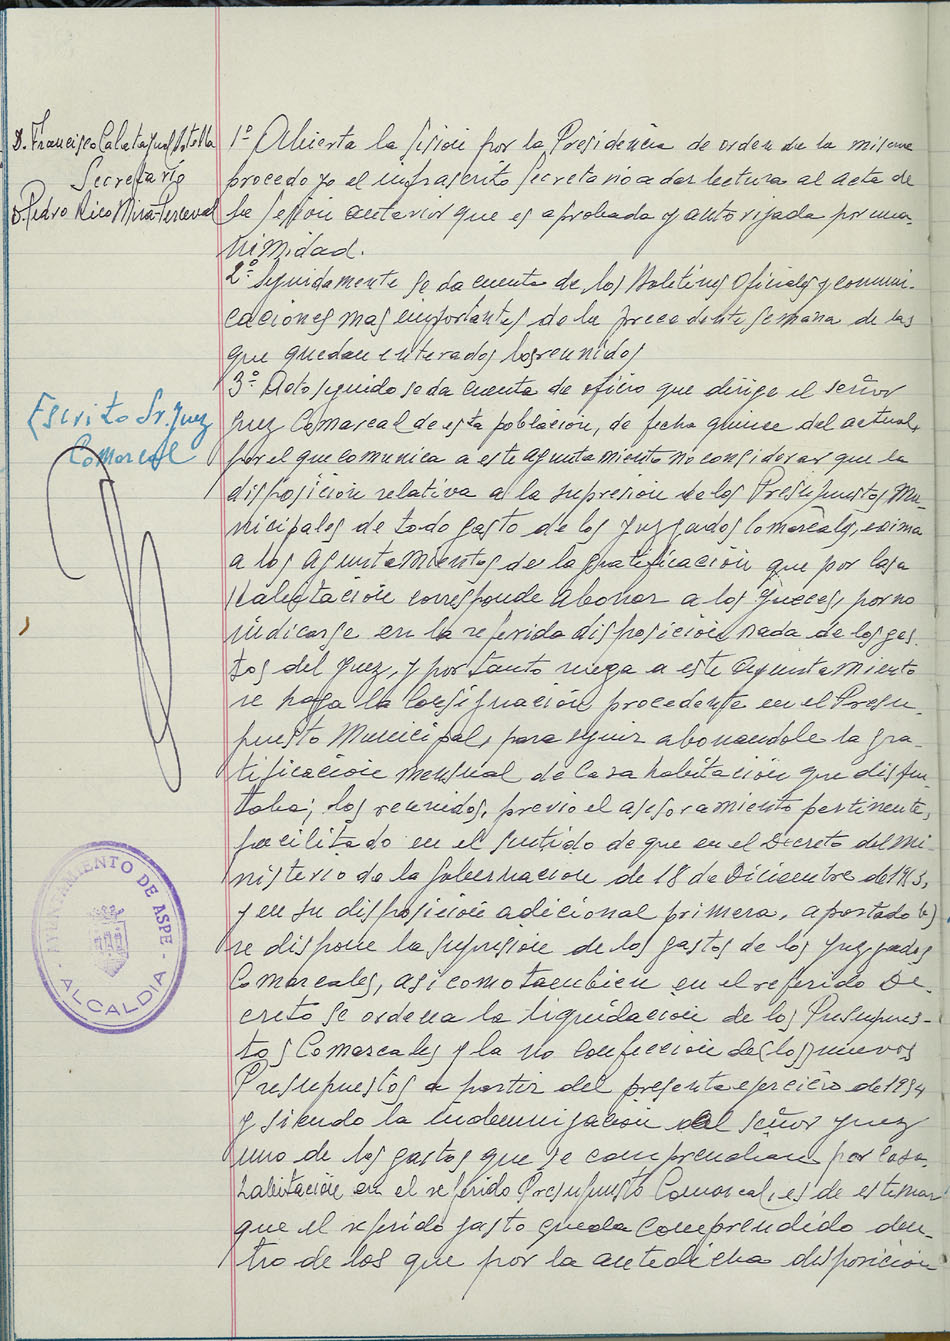 D. Francisco Calatayud Botella
Secretario
D. Pedro Rico Mira-Perceval
1º Abierta la sesión por la Presidencia de orden de la misma
procedo yo el infrascrito Secretario a dar lectura al acta de
la sesión anterior que es aprobada y autorizada por una-
nimidad.
2º Seguidamente se da cuenta de los Boletines Oficiales y comuni-
caciones mas importantes de la precedente semana de las
que quedan enterados los reunidos
3º Acto seguido se da cuenta de oficio que dirige el señor
Juez Comarcal de esta población, de fecha quince del actual,
por el que comunica a este ayuntamiento no considerar que la
disposición relativa a la supresion de los Presupuestos Mu-
nicipales de todo gasto de los Juzgados Comarcales, exima
a los Ayuntamientos de la gratificación que por casa
Habitación corresponde abonar a los Jueces, por no
indicarse en la referida disposición nada de los gas-
tos del Juez, y por tanto ruega a este Ayuntamiento
se haga la consignación procedente en el Presu-
puesto Municipal, para seguir abonandole la gra-
tificación mensual de casa habitación que disfru-
taba; los reunidos, previo el asesoramiento pertinente,
facilitado en el sentido de que en el Decreto del Mi-
nisterio de la Gobernacion de 18 de Diciembre de 1953,
y en su disposición adicional primera, apartado b)
se dispone la supresion de los gastos de los Juzgados
Comarcales, asi como tambien en el referido De-
creto se ordena la liquidación de los Presupues-
tos Comarcales y la no confeccion de (los) nuevos
Presupuestos a partir del presente ejercicio de 1954
y siendo la indemnización del señor Juez
uno de los gastos que se comprendian por casa
habitación en el referido Presupuesto Comarcal, es de estimar
que el referido gasto queda comprendido den-
tro de los que por la antedicha disposicion
Escrito Sr. Juez
Comarcal
AYUNTAMIENTO DE ASPE
- ALCALDIA -